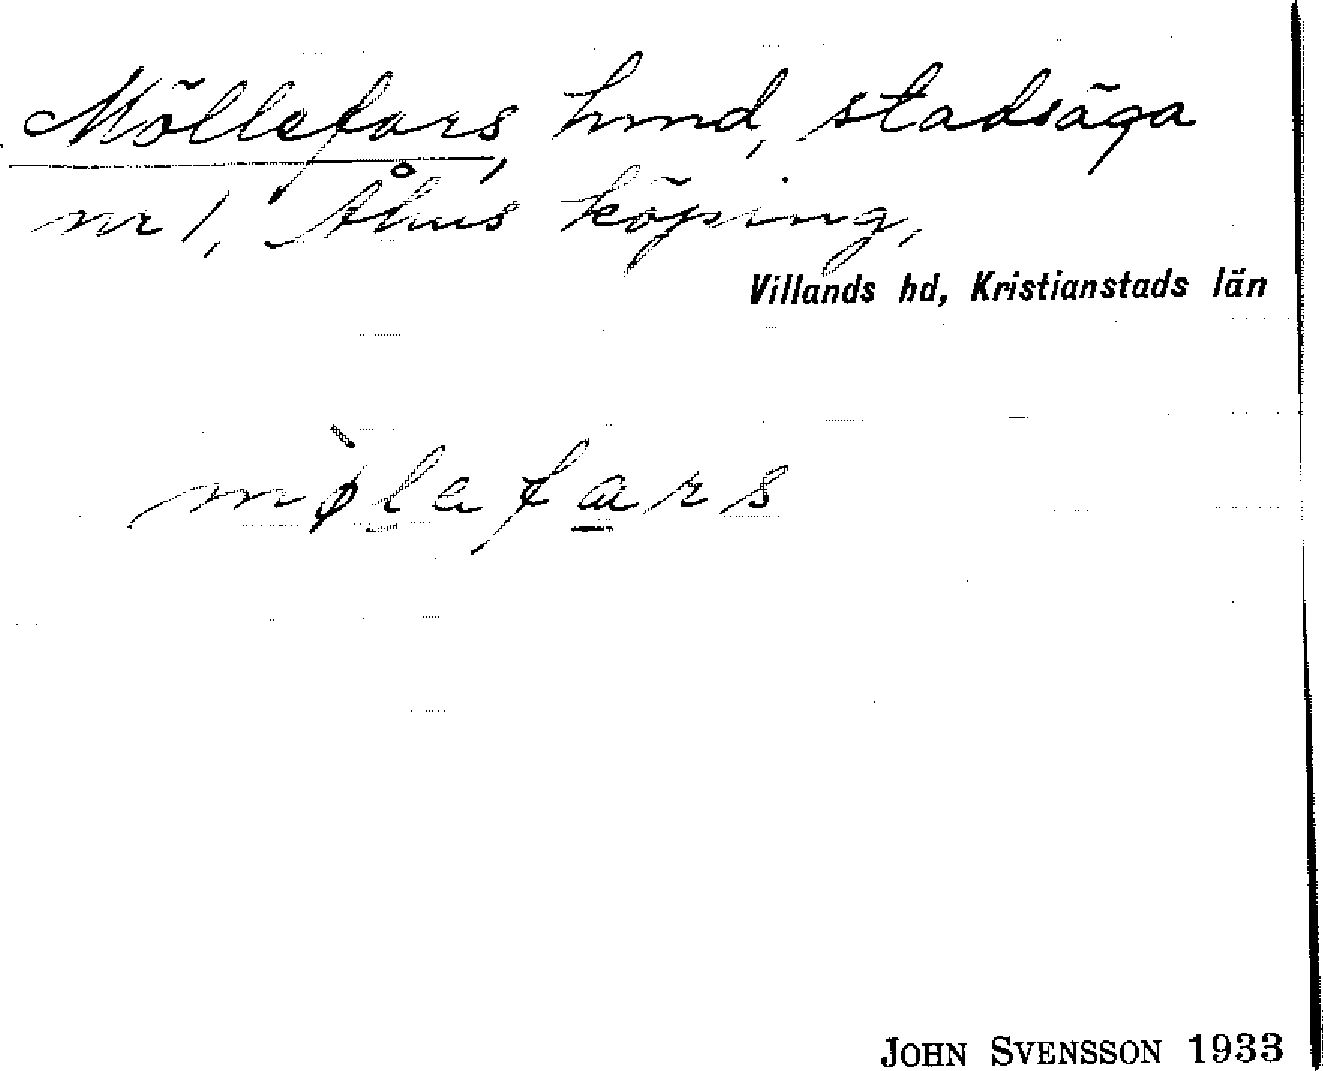 Möllefars, hmd, stadsäga
nr 1, Åhus köping,
Villands hd, Kristianstads län
mø̀lefars
JOHN SVENSSON 1933